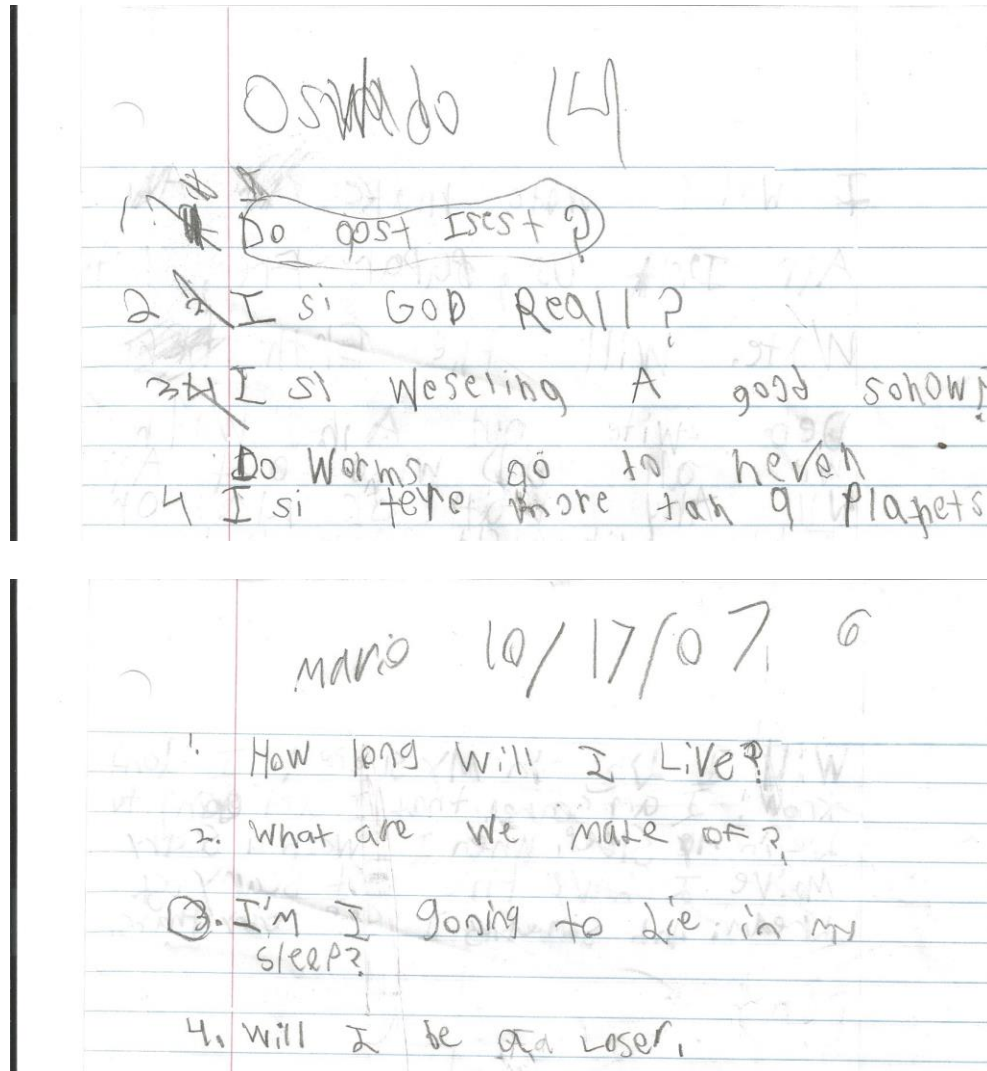 Oswaldo 14
1. Do gost Isest?
2 I si GOD Reall?
3 I si Weseling A good sohow?
Do Worms go to heven
4 I si tere more tan 9 Planets
mario 10/17/07 6
1. How long will I Live?
2. What are we made of?
3. I'm I goning to die in my
sleep?
4. Will I be a Loser.